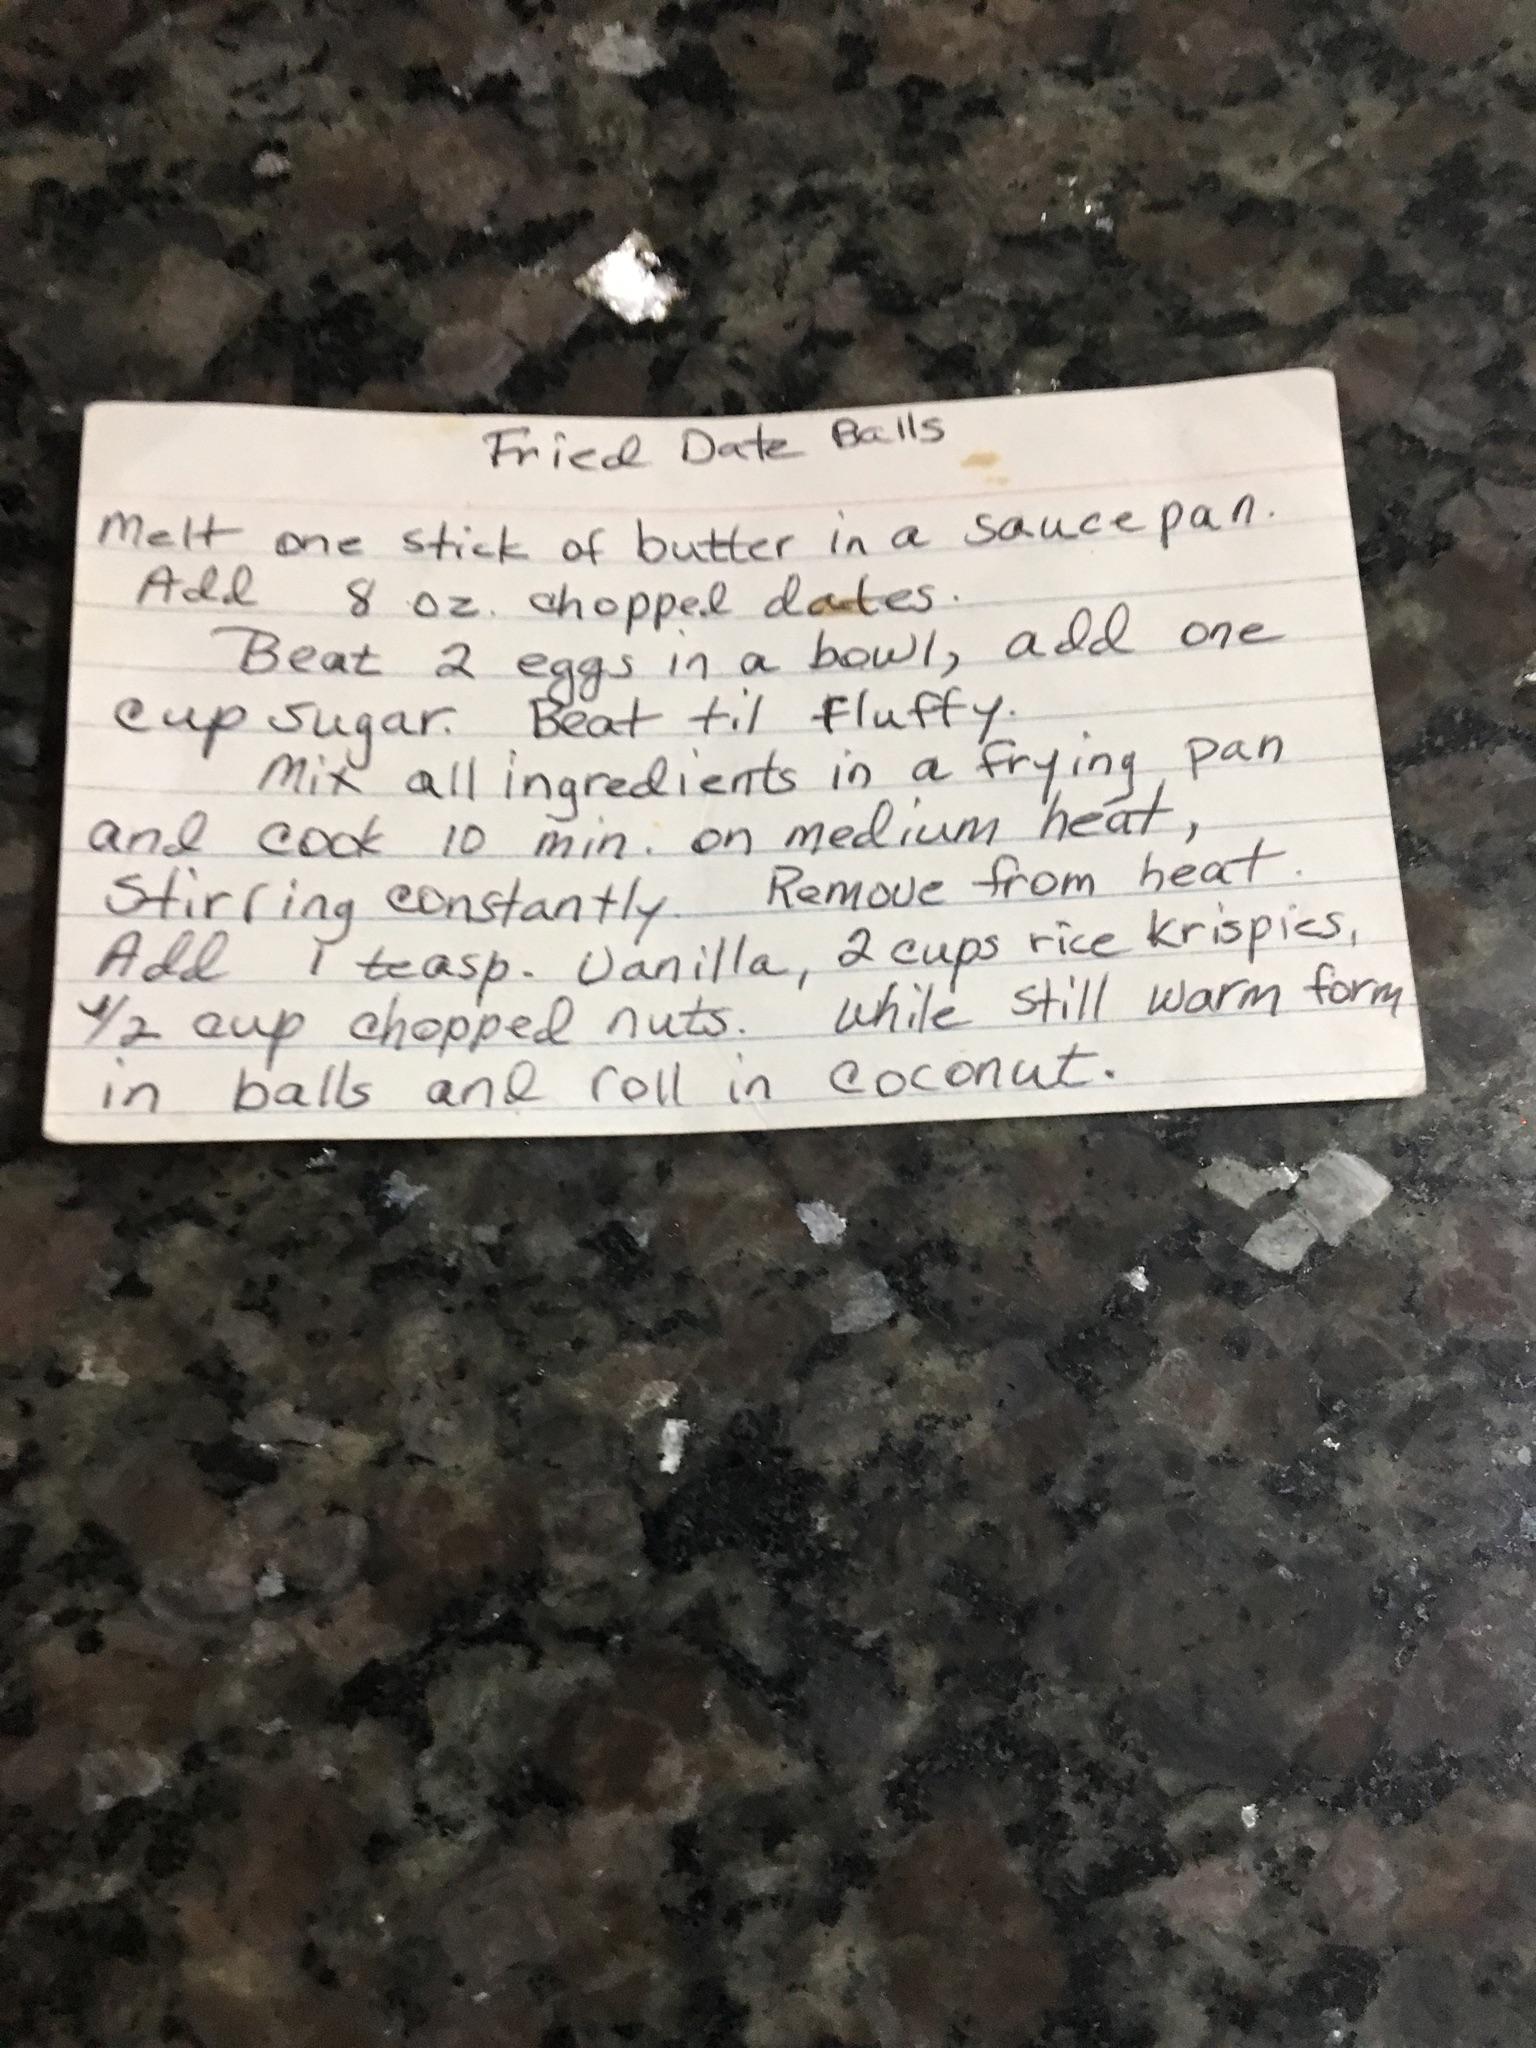 Fried Date Balls
Melt one stick of butter in a saucepan.
Add 8 oz. chopped dates.
Beat 2 eggs in a bowl, add one
cup sugar. Beat til fluffy.
Mix all ingredients in a frying pan
and cook 10 min. on medium heat,
Stirring constantly. Remove from heat.
Add 1 teasp. Vanilla, 2 cups rice krispies,
1/2 cup chopped nuts. While still warm form
in balls and roll in coconut.